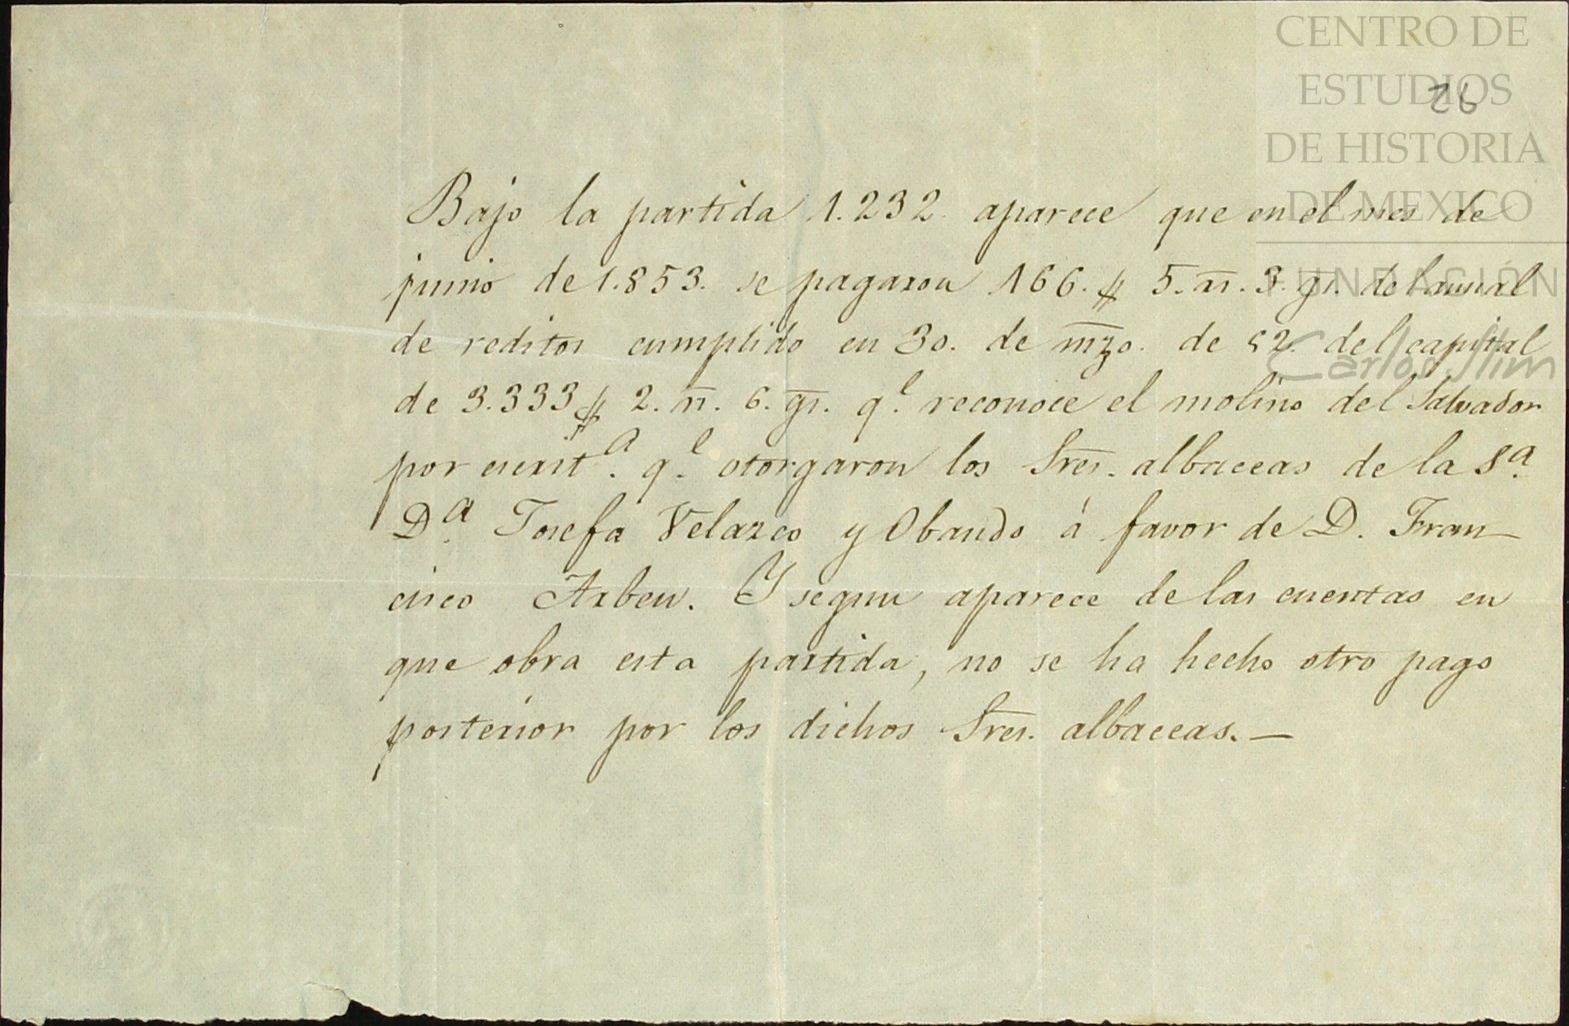 CENTRO DE
ESTUDIOS
DE HISTORIA
DE MEXICO
FUNDACIÓN
Carlos Slim
26
Bajo la partida 1.232. aparece que en el mes de
junio de 1.853. se pagaron 166. $ 5. rr. 3. gr. de la anual
de reditos cumplido en 30. de mzo. de 52. del capital
de 3.333 $ 2. rr. 6. gr. q.e reconoce el molino del Salvador
por escrit.a q.e otorgaron los Sres. albaceas de la S.a
D.a Josefa Velazco y Obando á favor de D. Fran-
cisco Arbeu. Y segun aparece de las cuentas en
que obra esta partida, no se ha hecho otro pago
posterior por los dichos Sres. albaceas.—